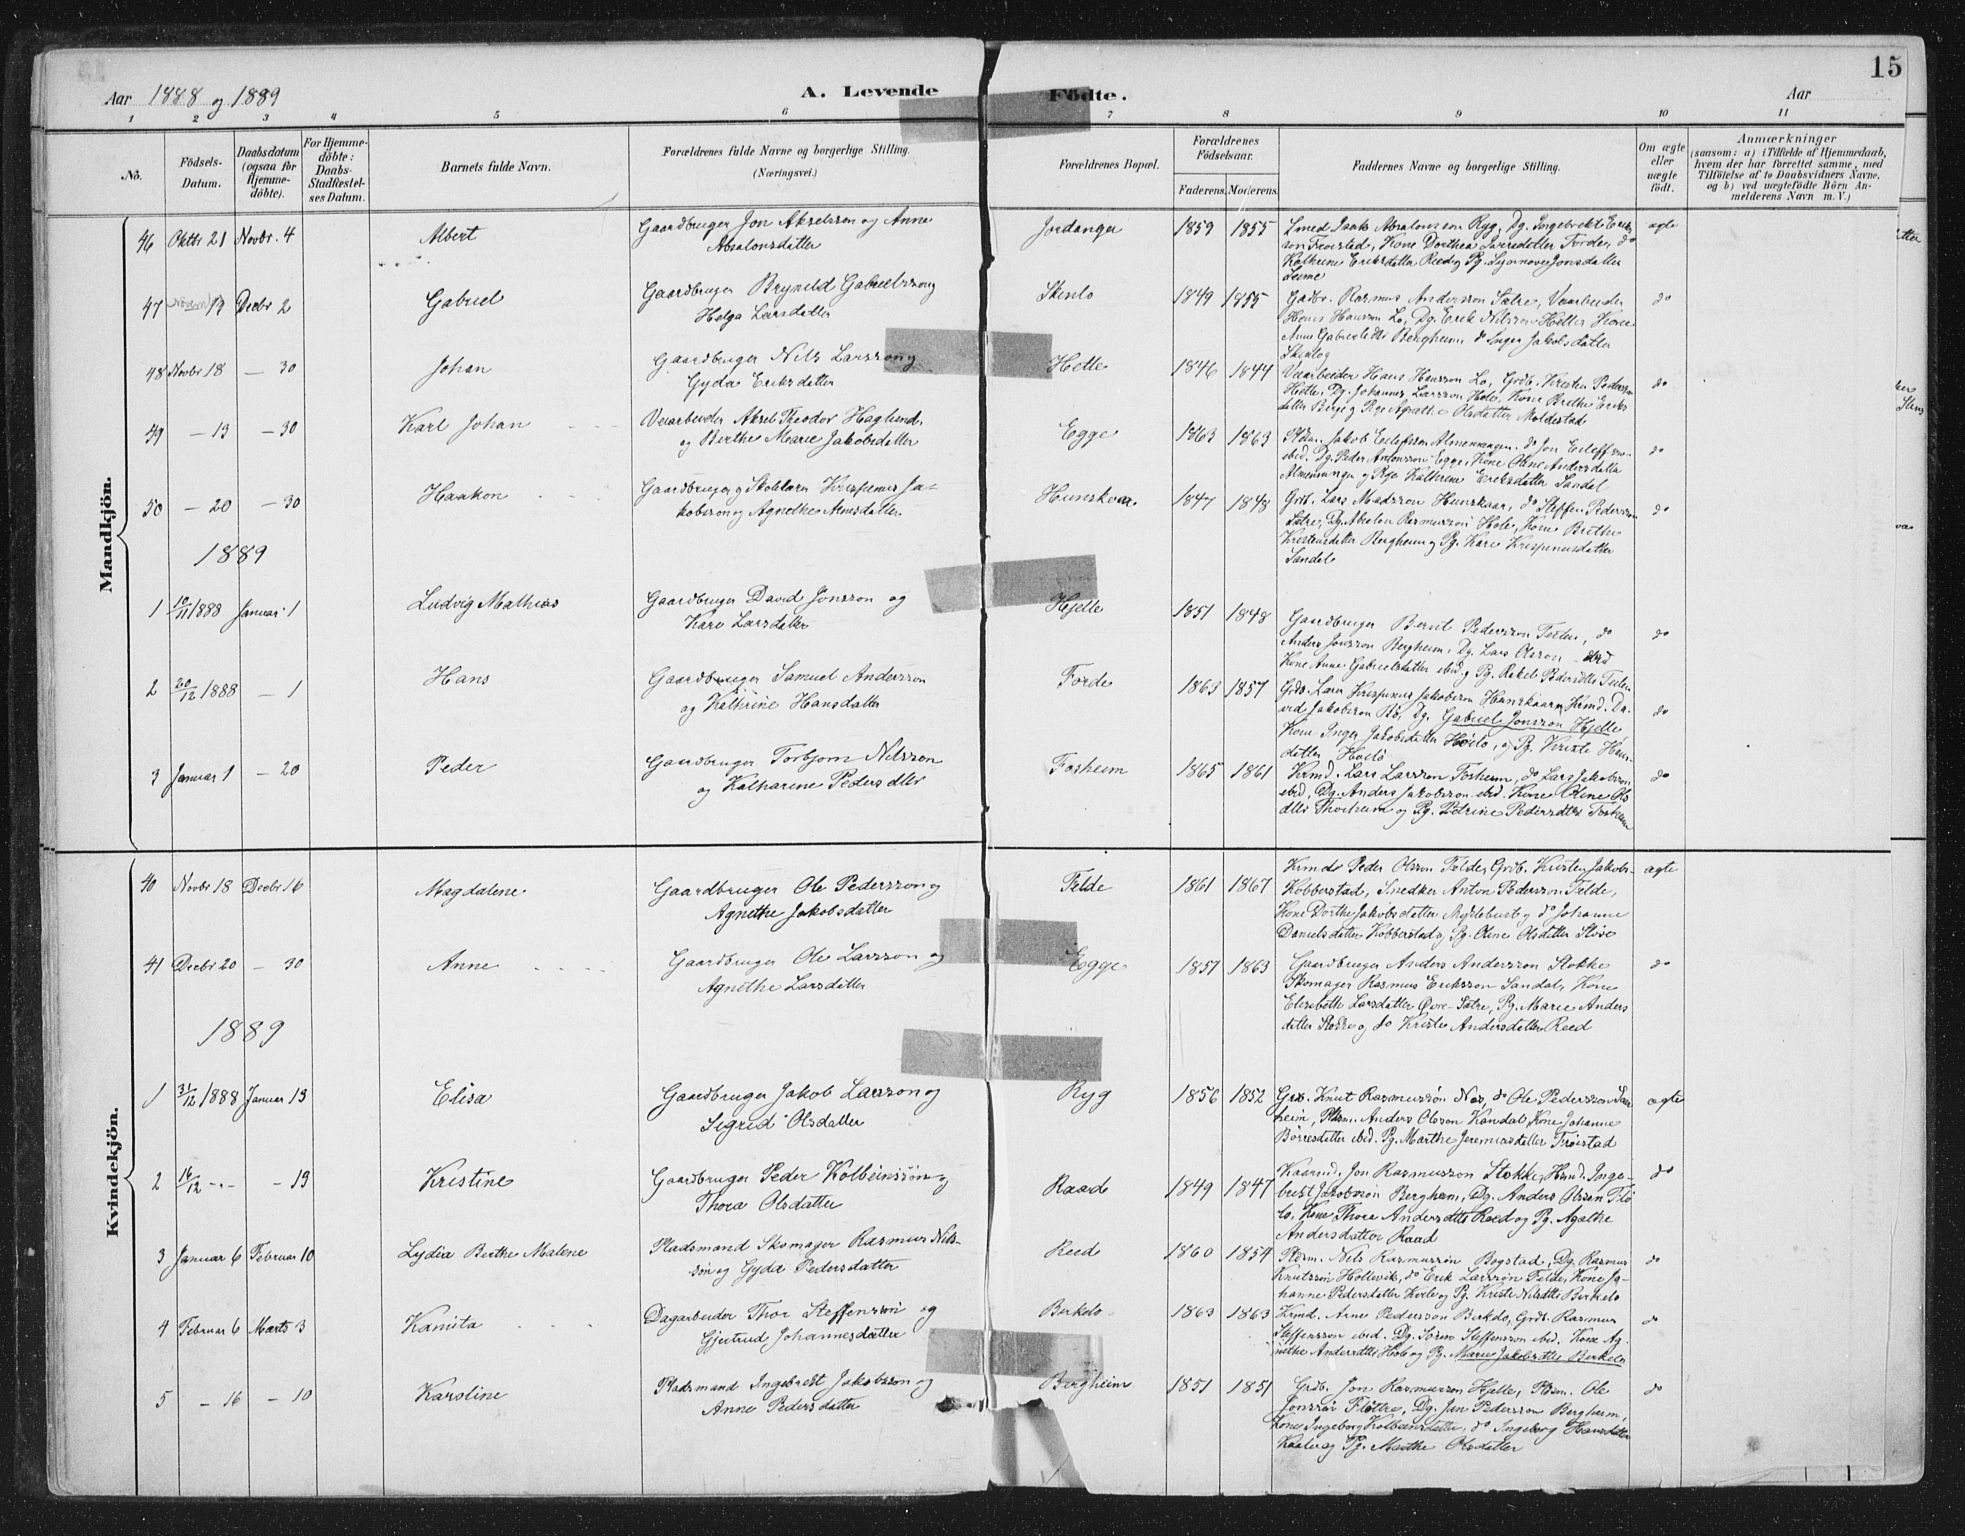 15
Aar 1888 og 1889 A. Levende Födte. Aar
1 2 3 4 5 6 7 8 9 10 11
No. Födsels-Datum. Daabsdatum (ogsaa för Hjemmedöbte). For Hjemmedöbte: Daabs-Stadfæstelses Datum. Barnets fulde Navn. Forældrenes fulde Navne og borgerlige Stilling. (Næringsvei.) Forældrenes Bopæl. Forældrenes Födselsaar. Faderens. Moderens. Faddernes Navne og borgerlige Stilling. Om ægte eller uægte födt. Anmærkninger
(saasom: a) i Tilfælde af Hjemmedaab, hvem der har forrettet samme, med Tilföielse af to Daabsvidners Navne, og b) ved uægtefödte Börn Anmelderens Navn m. V.)
Mandkjön.
46 Oktbr 21 Novbr. 4 Albert Gaardbruger Jon Akselsson og Anne
Absalonsdatter
Jordanger 1859 1855 Smed Isak Absalonsson Ryg, Dg. Ingebrekt Erik-
son Froistad, Kone Dorthea Larsdatter Forde, do
Kathrine Eriksdatter Reed og Pg. Synnøve Jonsdatter
ægte
47 19 Decbr 2 Gabriel Gaardbruger Brynild Gabrielsson og
Helga Larsdatter
Skinlo 1849 1855 Gadbr. Rasmus Andersson Sætre, Veiarbeider
Hans Hansson Lo, Dg. Erik Nilsson Hetle Kone
Anne Gabrielsdtr Bergheim, do Inger Jakobsdatter
Skinlo
do
48 Novbr 18 — 30 Johan Gaardbruger Nils Larsson og
Gyda Eriksdatter
Hetle 1846 1844 Veiarbeider Hans Hansson Lo, Grdb. Kristen Pederson
Hetle, Dg. Johannes Larsson Hole, Kone Brithe Eriks
datter Berge og Pige Agnethe Olsdatter Moldestad
do
49 — 13 — 30 Karl Johan Veiarbeider Aksel Theodor Haglund
og Birthe Marie Jakobsdatter
Egge 1863 1863 Jakob Eilefsson Almenningen, do Jon Eileffson
ibid. Dg. Peder Antonsson Egge, Kone Oline Andersdatter
Almenningen og Pige Kathrine Eriksdatter Sandal
do
50 — 20 — 30 Haakon Gaardbruger og Skolelærer Krispinus Ja-
kobson og Agnethe Arnesdatter
Hunskaar 1847 1848 Grdb. Lars Madsson Hunskaar, do Steffen Pedersson
Sætre, Dg. Absalon Rasmusson Hole, Kone Brithe
Kristensdatter Bergheim og Pg. Kari Krispinusdatter
Sandal
do
1889
1 10/11 1888 Januar 1 Ludvig Mathias Gaardbruger David Jonsson og
Kari Larsdatter
Hjelle 1851 1848 Gaardbruger Bernt Pedersson Teslen, do
Anders Jonsson Bergheim, Dg. Lars Olsson ibid
Kone Anne Gabrielsdatter ibid og Pg. Rakel Pedersdtr Teslen
do
2 20/12 1888 — 1 Hans Gaardbruger Samuel Andersson
og Kathrine Hansdatter
Forde 1863 1857 Grdb. Lærer Krispinus Jakobson Hunskaar, Da-
vid Jakobson Bø, Dg. Gabriel Jonsson Hjelle
Kone Inger Jakobsdatter Hoslo, og Pg. Kristi Hans-
datter Hoslo
do
3 Januar 1 — 20 Peder Gaardbruger Torbjorn Nilsson
og Katharine Pedersdtr
Forheim 1865 1861 Krmd. Lars Larsson Forheim, do Lars Jakobson
ibid, Dg. Anders Jakobson ibid. Kone Oline Ols
dtr Thorheim og Pg. Petrine Pedersdtr Forheim
do
Kvindekjön.
40 Novbr 18 Decbr 16 Magdalene Gaardbruger Ole Pedersson og
Agnethe Jakobsdatter
Felde 1861 1867 Krmd. Peder Olsson Felde, Grdb. Kristen Jakobs-
Kobberstad, Snedker Anton Pedersson Felde,
Kone Dorthe Jakobsdatter Myklebust og do Johanne
Danielsdatter Kobberstad og Pg. Oline Olsdatter Støve
ægte
41 Decbr 20 — 30 Anne Gaardbruger Ole Larsson og
Agnethe Larsdatter
Egge 1857 1863 Gaardbruger Anders Andersson Stokke
Skomager Rasmus Eriksson Sandal, Kone
Elisabeth Larsdatter Øvre-Sætre, Pg. Marie Anders
datter Stokke og do Kristi Andersdatter Reed
do
1889
1 31/12 1888 Januar 13 Elisa Gaardbruger Jakob Larsson og
Sigrid Olsdatter
Ryg 1856 1852 Knut Rasmussøn Nos, do Ole Pedersson
heim, Plsm. Anders Olsson Kandal, Kone Johanne
Börresdatter ibid. Pg. Marthe Jeremiasdatter Froistad
ægte
2 16/12 -"- — 13 Kristine Gaardbruger Peder Kolbeinssön og
Thora Olsdatter
Raad 1849 1847 Kaarmd. Jon Rasmusson Stokke, Husmd. Inge-
brekt Jakobson Bergheim, Dg. Anders Olsen Flø
lo, Kone Thora Andersdtr Reed og Pg. Agathe
Andersdatter Raad
do
3 Januar 6 Februar 10 Lydia Berthe Malene Pladsmand Skomager Rasmus Nils-
sön og Gyda Pedersdatter
Reed 1860 1854 Plsm. Nils Rasmussön Bogstad, Dg. Rasmus
Knutssön Hollevik, do Erik Larssön Felde, Kone Jo-
hanne Pedersdatter Hole og Pg. Kristi Nilsdtr Birkelo
do
4 Februar 6 Marts 3 Kanita Dagarbeider Thor Steffensson og
Gjertrud Johannesdatter
Birkelo 1863 1863 Krmd. Arne Pedersson Birkelo, Grdb. Rasmus
Steffensson ibid. Dg. Sören Steffensson ibid. Kone Ag-
nethe Andersdtr Hole og Pg. Marie Jakobsdtr Birkelo
do
5 — 16 — 10 Karstine Pladsmand Ingebrekt Jakobsson og
Anne Pedersdatter
Bergheim 1851 1851 Grdb. Jon Rasmusson Hjelle, Plsm. Ole
Jonssön Flöttre, Dg. Jon Pedersson Bergheim,
Kone Ingeborg Kolbeinsdatter, do Ingeborg Hansdatter
og Pg. Marthe Olsdatter
do